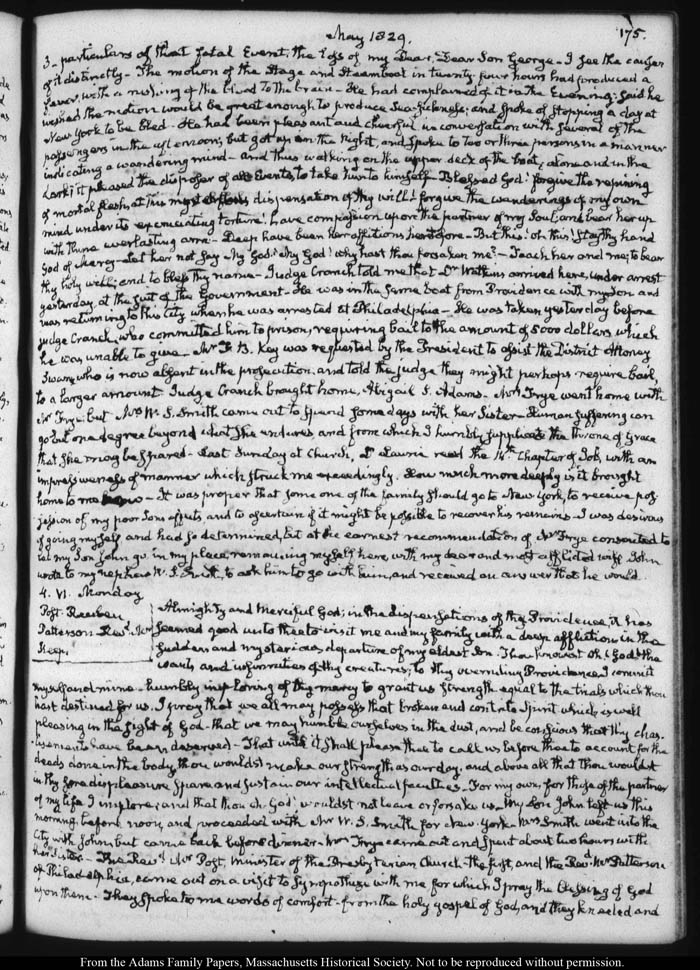 May 1829.
175.
3_ particulars of that fatal Event; the loss of my Dear, Dear Son George_ I see the causes
of it distinctly_ The motion of the Stage and Steamboat in twenty four hours had produced a
fever, with a rushing of the blood to the brain_ He had complained of it in the Evening; said he
wished the motion would be great enough to produce Sea-sickness; and spoke of stopping a day at
New York to be bled_ He had been pleasant and cheerful in conversation with several of the
passengers in the afternoon; but got up in the Night, and spoke to two or three persons in a manner
indicating a wandering mind_ and thus walking on the upper deck of the boat, alone and in the
dark; it pleased the disposer of all Events, to take him to himself_ Blessed God! forgive the repining
of mortal flesh, at this dispensation of thy will! forgive the wanderings of my own
mind under its excruciating torture! have compassion upon the partner of my Soul, and bear her up
with thine everlasting arm_ Deep have been her afflictions heretofore_ But this! oh this! Stay thy hand
God of Mercy_ Let her not say My God! My God! why hast thou forsaken me?_ Teach her and me, to bear
thy holy will; and to bless thy name_ Judge Cranch told me that Dr. Watkins arrived here, under arrest
yesterday, at the suit of the Government_ He was in the same boat from Providence with my Son and
was returning to this City, when he was arrested at Philadelphia_ He was taken yesterday before
Judge Cranch, who committed him to prison, requiring bail to the amount of 5000 dollars, which
he was unable to give_ Mr F. B. Key was requested by the President to assist the District Attorney
Swann, who is now absent in the prosecution, and told the judge they might perhaps require bail,
to a larger amount. Judge Cranch brought home, Abigail S. Adams_ Mrs Frye went home with
Mr Frye; but Mrs W. S. Smith came out to spend some days with her Sister_ Human suffering can
go but one degree beyond what she endures, and from which I humbly supplicate the throne of Grace
that she may be spared_ Last Sunday at Church, Dr Laurie read the 14th Chapter of Job, with an
impressiveness of manner which struck me exceedingly. How much more deeply is it brought
home to me_ It was proper that some one of the family should go to New York, to receive pos-
session of my poor Sons effects, and to ascertain if it might be possible to recover his remains_ I was desirous
of going myself, and had so determined, but at the earnest recommendation of Mr Frye consented to
let my Son John go in my place, remaining myself here with my dear and most afflicted wife. John
wrote to my nephew W. S. Smith, to ask him to go with him, and received an answer that he would.
4. VI. Monday
Post. Reuben
Patterson Revd. Mr
Keep.
Almighty and Merciful God; in the dispensations of thy Providence, it has
seemed good unto thee to visit me and my family with a deep affliction in the
sudden and mysterious departure of my eldest Son. Thou knowest Oh! God! the
wants and infirmities of thy creatures; to thy overruling Providence I commit
myself and mine_ humbly imploring of thy mercy to grant us strength equal to the trials which thou
hast destined for us. I pray that we all may possess that broken and contrite Spirit which is well
pleasing in the sight of God_ that we may humble ourselves in the dust, and be conscious that thy chas-
tisements have been deserved_ That until it shall please thee to call us before thee to account for the
deeds done in the body, thou wouldst make our strength as our day, and above all that thou wouldst
in thy sore displeasure spare and sustain our intellectual faculties_ For my own, for those of the partner
of my life I implore; and that thou oh God! wouldst not leave or forsake us_ My Son John left us this
morning, before noon, and proceeded with Mr W. S. Smith for New York_ Mrs Smith went into the
City with John, but came back before dinner_ Mrs Frye came out and spent about two hours with
her Sister_ The Revd. Mr Post, Minister of the Presbyterian Church_ the first, and the Revd. Mr Patterson
of Philadelphia, came out on a visit to sympathize with me for which I pray the blessing of God
upon them_ They spoke to me words of comfort_ from the holy gospel of God, and they kneeled and
From the Adams Family Papers, Massachusetts Historical Society. Not to be reproduced without permission.